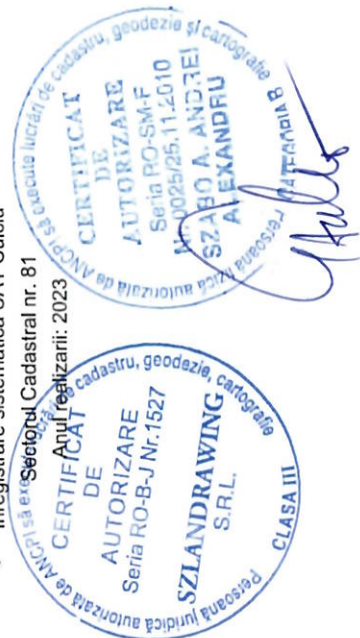 Inregistrare sistematica UAT
Sectorul Cadastral nr. 81
Anul realizarii: 2023
Persoană juridică autorizată de ANCPI să execute lucrări de cadastru, geodezie, cartografie
CERTIFICAT
DE
AUTORIZARE
Seria RO-B-J Nr.1527
SZLANDRAWING
S.R.L.
CLASA III
Persoană fizică autorizată de ANCPI să execute lucrări de cadastru, geodezie și cartografie
CERTIFICAT
DE
AUTORIZARE
Seria RO-SM-F
Nr. 0025/25.11.2010
SZABO A. ANDREI
ALEXANDRU
CATEGORIA B